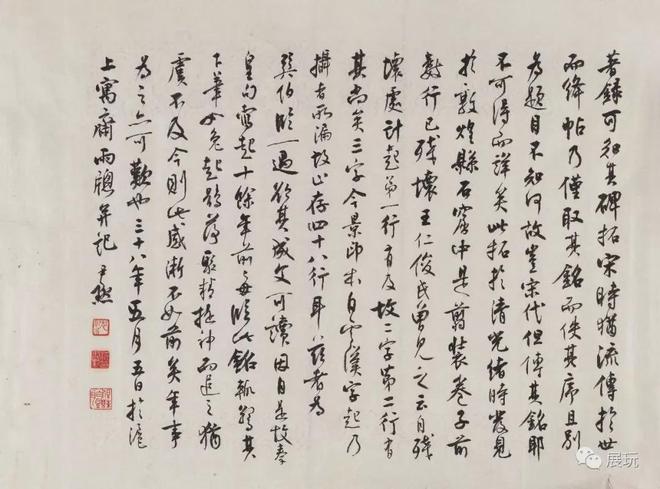 著錄可知其碑拓宋時猶流傳於世
而絳帖乃僅取其銘而佚其序且別
為題目不知何故豈宋代但傳其銘耶
不可得而詳矣此拓於清光緒時發見
於敦煌縣石窟中是翦裝卷子前
數行已殘壞王仁俊氏曾見之云自殘
壞處計起第一行有及故二字第二行有
其尚矣三字今景印本自雲漢字起乃
攝者所漏故止存四十八行耳茲者為
巽伯臨一過欲其成文可讀因自是故秦
皇句起十餘年前每臨此銘輒覺其
下筆如兔起鶻落聚精提神而追之猶
虞不及今則此感漸不如前矣年事
為之亦可歎也三十八年五月五日於滬
上寓齋雨牕並記 尹默
展玩